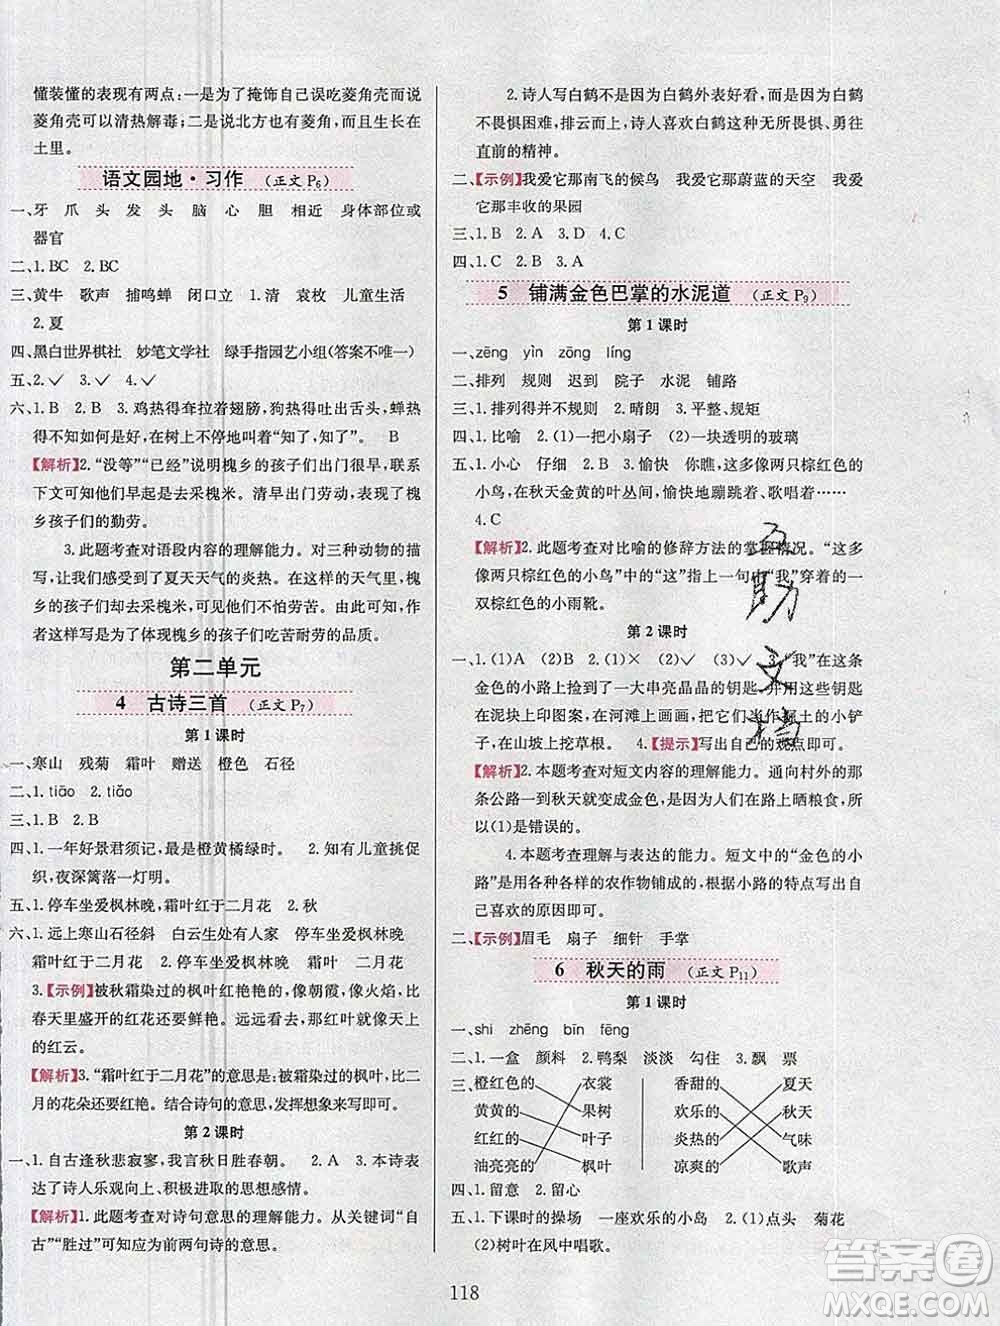 懂装懂的表现有两点:一是为了掩饰自己误吃菱角壳而说
菱角壳可以清热解毒;二是说北方也有菱角,也生长在
土里。
语文园地·习作 (正文 P6)
一、牙 爪 头 发 头 脑 心 胆 相近 身体部位或
器官
二、1. BC 2. BC
三、黄牛 歌声 捕鸣蝉 闭口立 1. 清 袁枚 儿童生活
2. 夏
四、黑白世界棋社 妙笔文学社 绿手指园艺小组(答案不唯一)
五、2. ✓ 3. ✓ 4. ✓
六、1. B 2. B 3. 鸡热得耷拉着翅膀,狗热得吐出舌头,蝉热
得不断在树上不停地叫着“知了,知了”。 B
【解析】2.“没等”“已经”说明槐乡的孩子们出门很早,联系
下文可知他们早起是去采槐米。清早出门劳动,表现了槐
乡孩子们的勤劳。
3. 此题考查对语段内容的理解能力。对三种动物的描
写,让我们感受到了夏天天气的炎热。在这样的天气里,槐
乡的孩子们却去采槐米,不怕炎热、不怕劳苦。由此可见,
作者这样写是为了体现槐乡的孩子们吃苦耐劳的品质。
第二单元
4 古诗三首 (正文 P7)
第 1 课时
一、寒山 残菊 霜叶 赠送 橙色 石径
二、1. tiāo 2. tiǎo
三、1. B 2. B
四、1. 一年好景君须记,最是橙黄橘绿时。 2. 知有儿童挑促
织,夜深篱落一灯明。
五、1. 停车坐爱枫林晚,霜叶红于二月花 2. 秋
六、1. 远上寒山石径斜 白云生处有人家 停车坐爱枫林晚
霜叶红于二月花 2. 停车坐爱枫林晚 霜叶红于二月花
3.【示例】被秋霜染过的枫叶红艳艳的,像朝霞,像火焰,比
春天里盛开的红花还要鲜艳。远远看去,红叶就像天上的
红云。
【解析】3.“霜叶红于二月花”的意思是:被霜染过的枫叶,比二
月的花朵还红艳。结合诗句的意思,发挥想象来写即可。
第 2 课时
一、1. 自古逢秋悲寂寥,我言秋日胜春朝。 2. A 3. 本诗表
达了诗人乐观向上、积极进取的思想感情。
【解析】1. 此题考查对诗句意思的理解能力。从关键词“自
古”“胜过”可知应为前两句诗的意思。
2. 诗人写白鹤不是为了表现白鹤外表好看,而是因为白鹤
不畏惧困难,排云而上,诗人喜欢白鹤这种不畏惧、勇往
直前的精神。
二、【示例】我爱它那南飞的候鸟 我爱它那蔚蓝的天空 我爱
它那丰收的果园
三、1. B 2. A 3. D 4. C
四、1. C 2. B 3. A
5 铺满金色巴掌的水泥道 (正文 P9)
第 1 课时
一、zēng yìn zōng líng
二、排列 规则 迟到 院子 水泥 铺路
三、1. 排列得并不规则 2. 晴朗 3. 平整、规矩
四、1. 比喻 2. (1)一把小扇子 (2)一块透明的玻璃
五、1. 小心 仔细 2. B 3. 愉快 你瞧,这多像两只棕红色的
小鸟,在秋天金黄的叶丛间,愉快地蹦跳着、歌唱着……
4. C
【解析】2. 此题考查对比喻的修辞方法的掌握情况。“这多
像两只棕红色的小鸟”中的“这”指上一句中“我”穿着的一
双棕红色的小雨靴。
第 2 课时
一、1. (1)A (2)B 2. (1)× (2)✓ (3)✓ 3.“我”在这条
金色的小路上捡到了一大串亮晶晶的钥匙,并用这些钥匙
在泥块上印图案,在河滩上画画,把它们当作挖土的小铲
子,在山坡上挖草根。 4.【提示】写出自己的观点即可。
【解析】2. 本题考查对短文内容的理解能力。通向村外的那
条公路一到秋天就变成金色,是因为人们在路上晒粮食,所
以(1)是错误的。
4. 本题考查理解与表达的能力。短文中的“金色的小
路”是各种各样的农作物铺成的,根据小路的特点写出自
己喜欢的原因即可。
二、【示例】眉毛 扇子 细针 手掌
6 秋天的雨 (正文 P11)
第 1 课时
一、shi zhēng bīn fēng
二、1. 一盒 颜料 2. 鸭梨 淡淡 勾住 3. 飘 票
三、橙红色的 衣裳 香甜的 夏天
黄黄的 果树 欢乐的 秋天
红红的 叶子 炎热的 气味
油亮亮的 枫叶 凉爽的 歌声
四、1. 留意 2. 留心
五、1. 下课时的操场 一座欢乐的小岛 2. (1)点头 菊花
(2)树叶在风中唱歌。
118
互助文档
答案圈
MXQE.COM